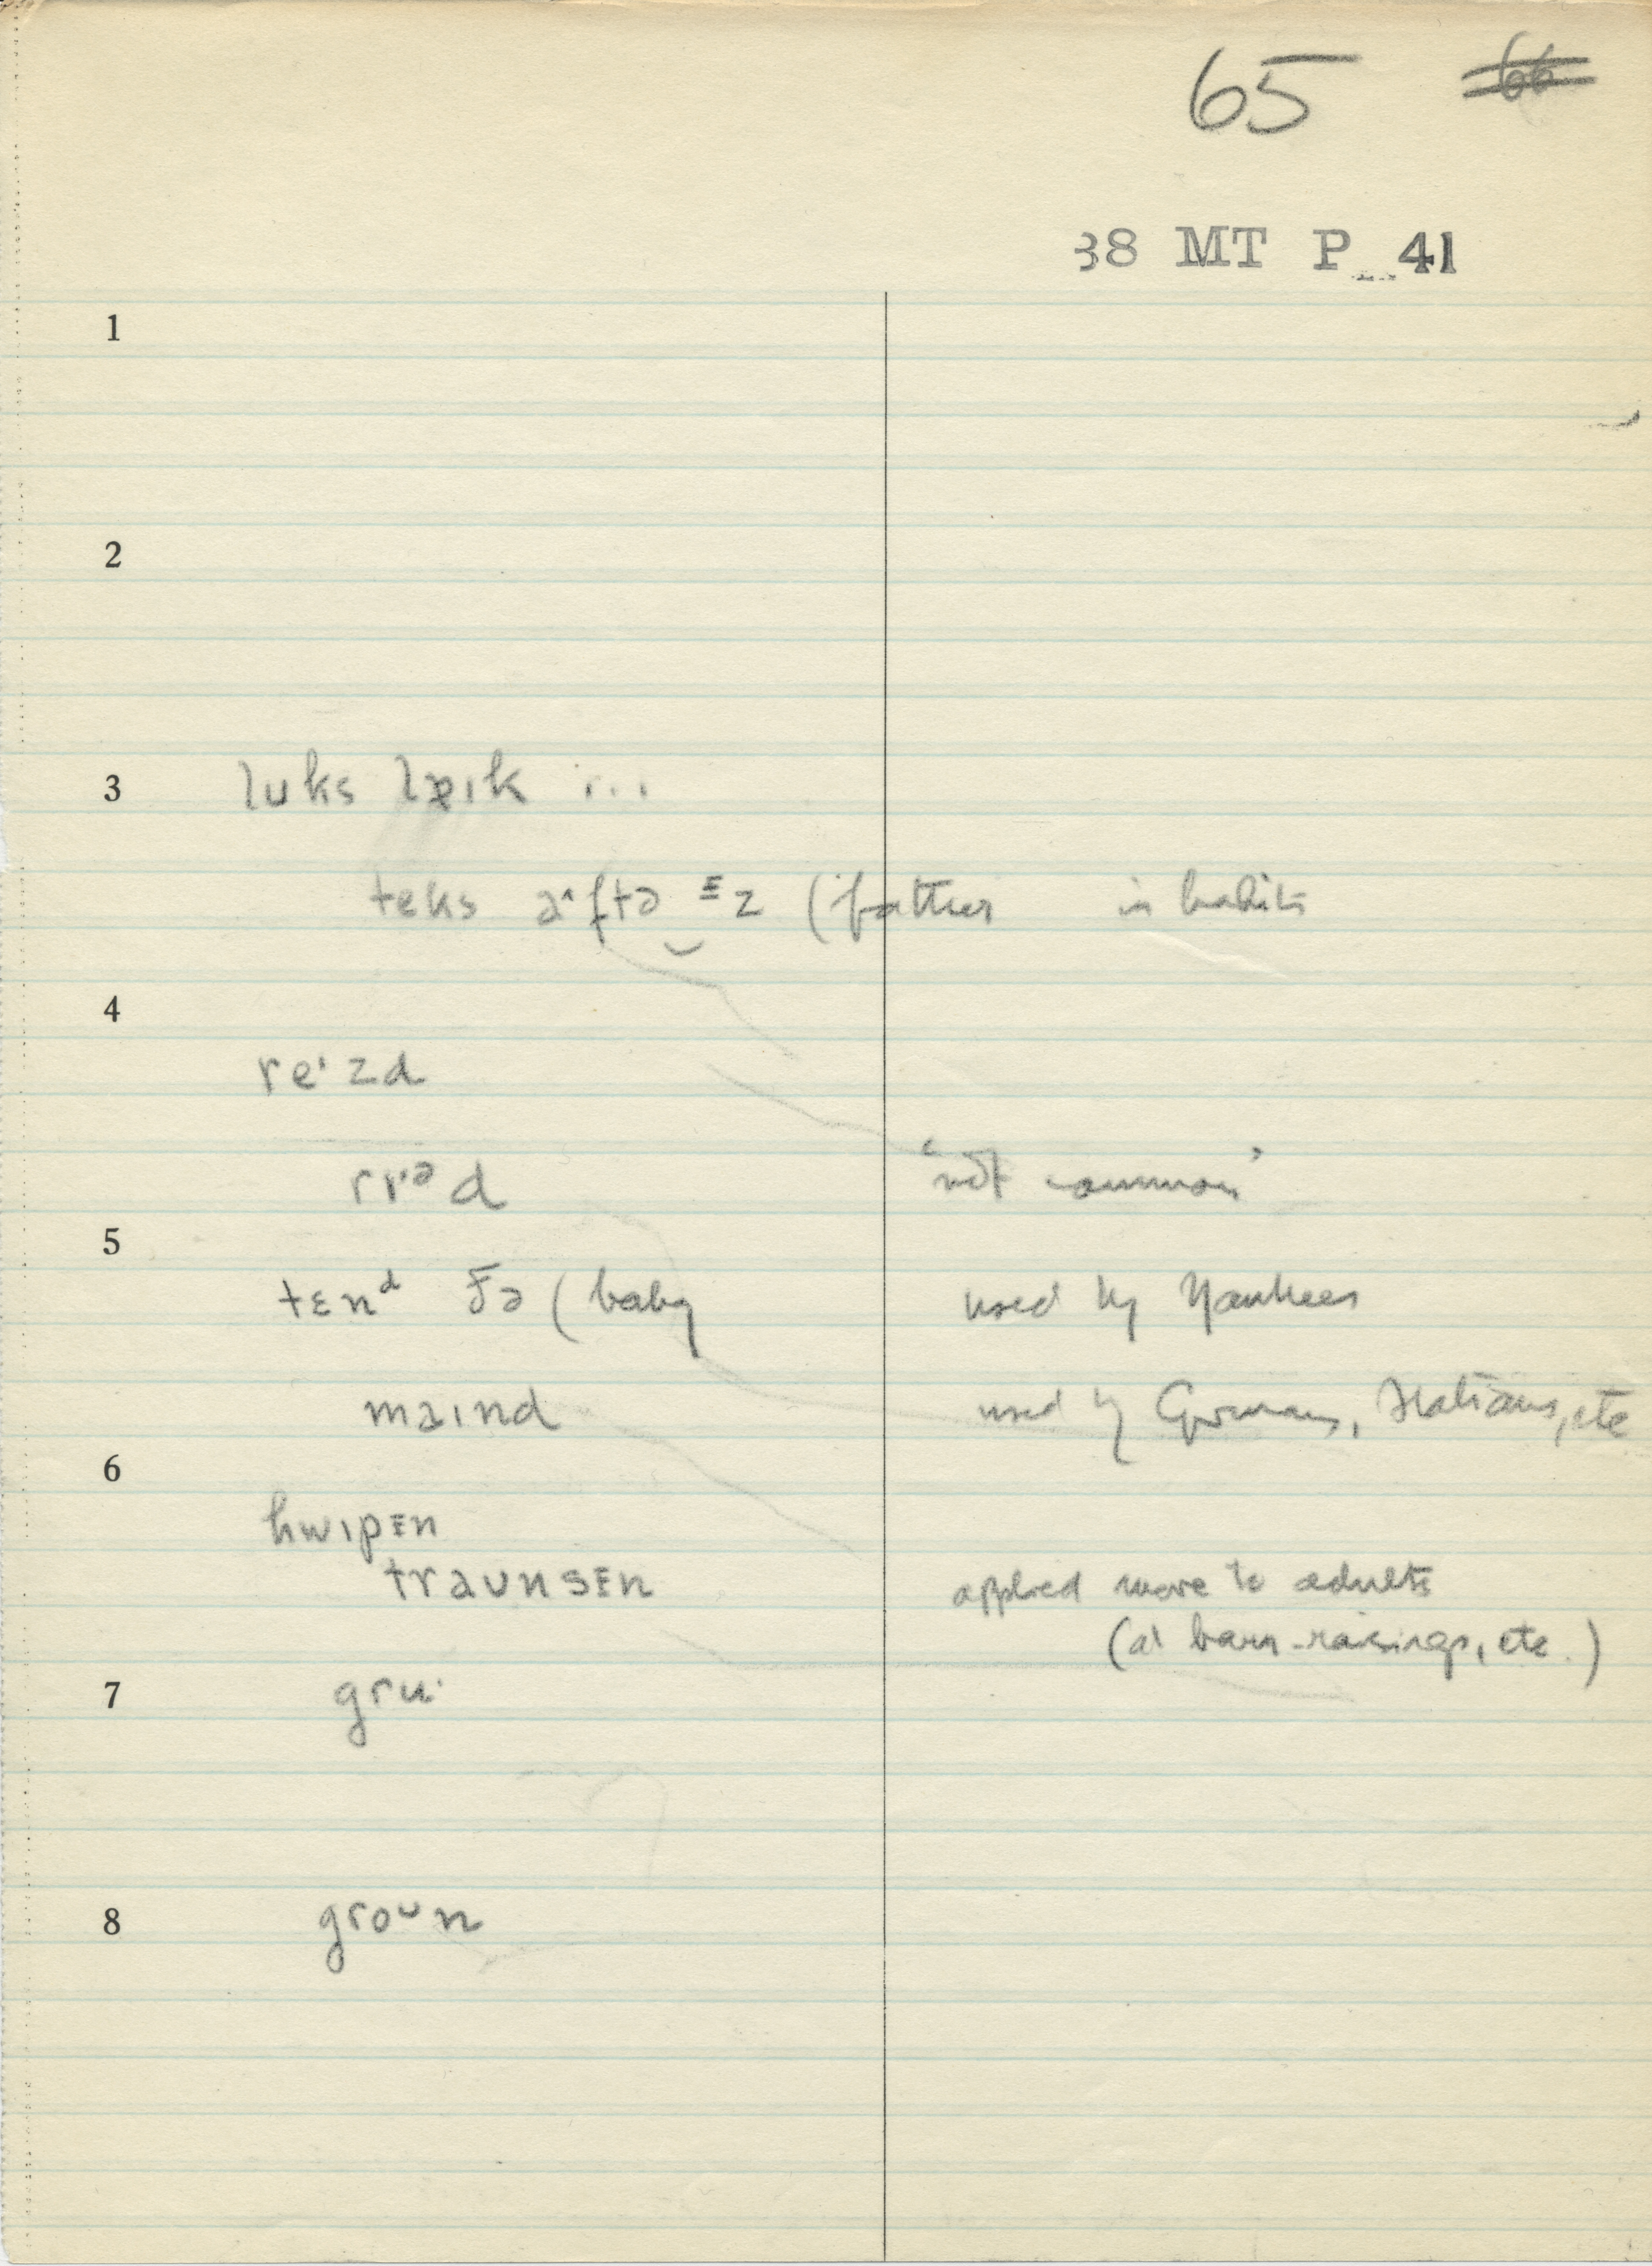 65 66
38 MT P 41
1
2
3 luks laɪk ...
teks aˑftə ᴲz (father in habits
4
reˑzd
rɪˑᵊd 'not common'
5
tɛnᵈ fə (baby used by Yankees
maɪnd used by Germans, Italians, etc
6
hwɪpᴇn
traunsᴇn applied more to adults
(at barn-raisings, etc.)
7 gruˑ
8 groᵘn